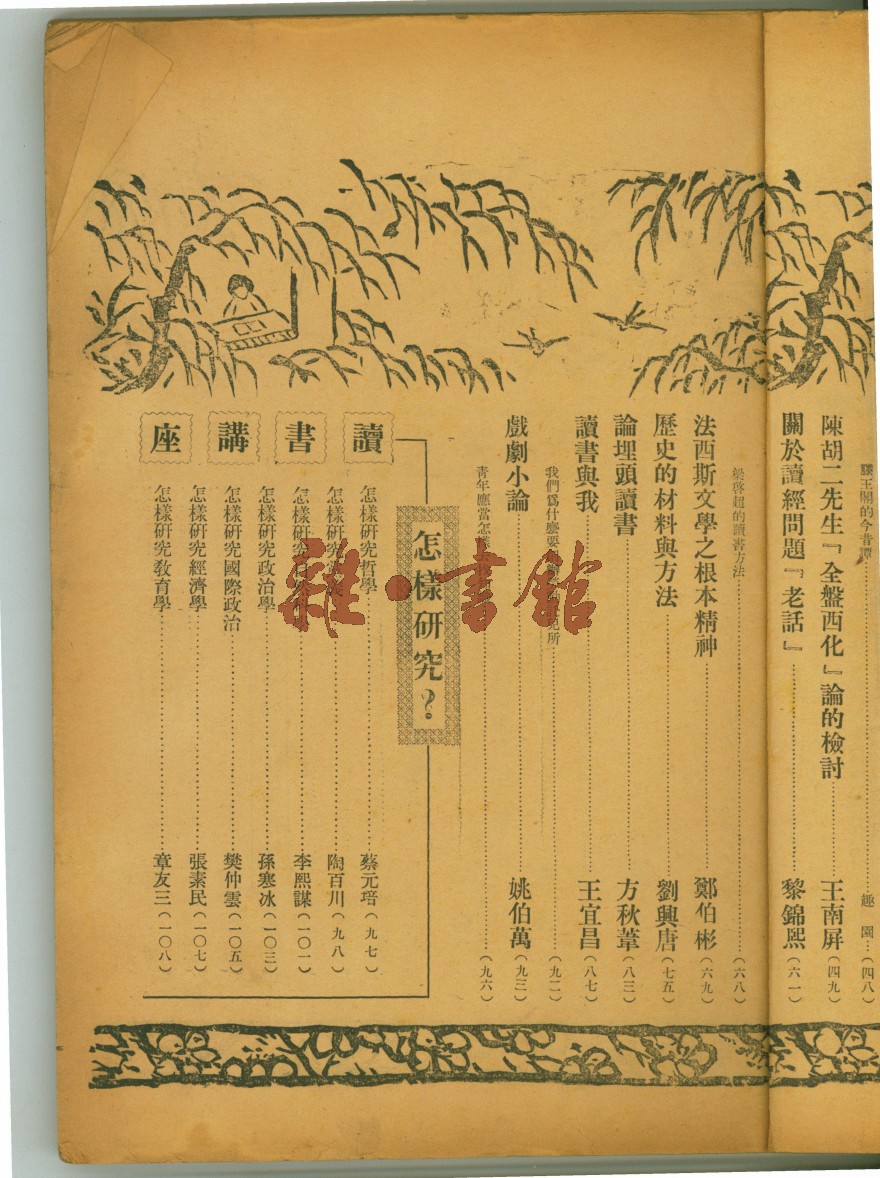 滕王閣的今昔譚……趣園…(四八)
陳胡二先生『全盤西化』論的檢討……王南屏(四九)
關於讀經問題『老話』……黎錦熙(六一)
梁啓超的讀書方法……(六八)
法西斯文學之根本精神……鄭伯彬(六九)
歷史的材料與方法……劉興唐(七五)
論埋頭讀書……方秋葦(八三)
讀書與我……王宜昌(八七)
我們爲什麼要……究所……(九二)
戲劇小論……姚伯萬(九三)
青年應當怎……(九六)
怎樣研究?
讀書講座
怎樣研究哲學……蔡元培(九七)
怎樣研究……陶百川(九八)
怎樣研究……李熙謀(一〇一)
怎樣研究政治學……孫寒冰(一〇三)
怎樣研究國際政治……樊仲雲(一〇五)
怎樣研究經濟學……張素民(一〇七)
怎樣研究教育學……章友三(一〇八)
雜·書館